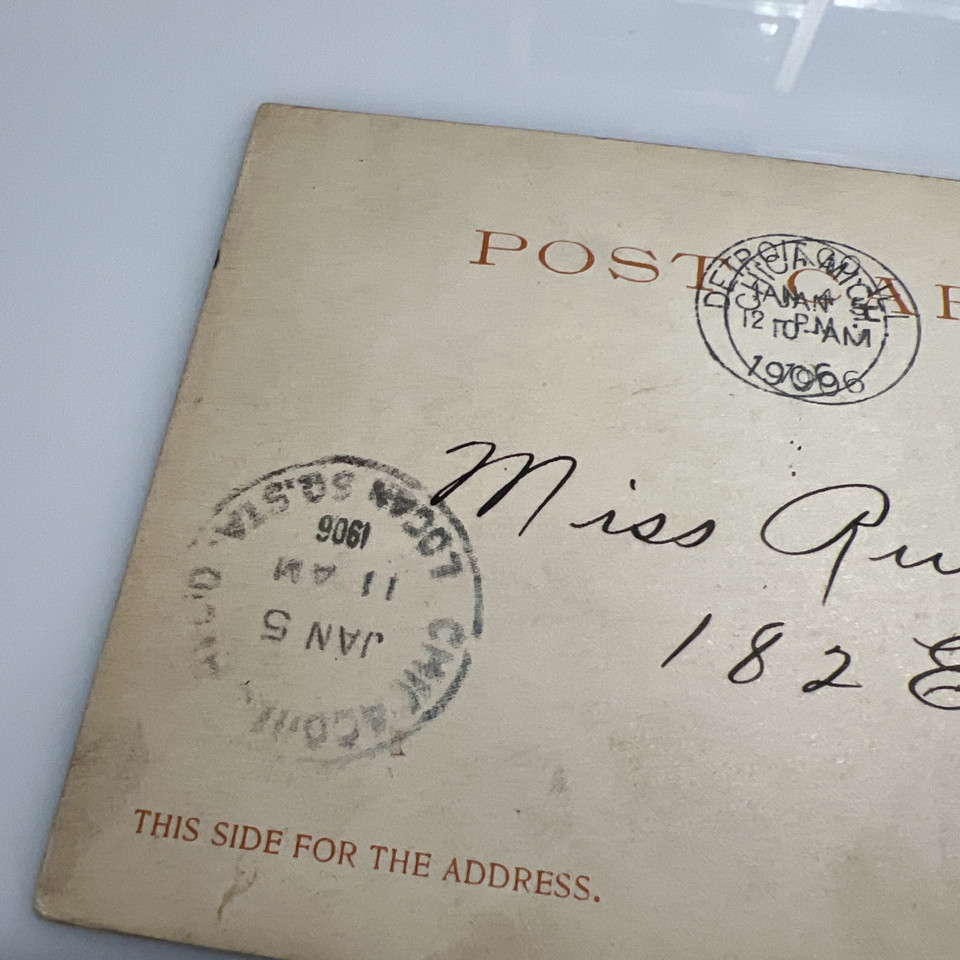 POST CA
DETROIT, MICH.
JAN 4
12 PM
1906
JAN 5
10 AM
1906
Miss
182 E
LOGAN SQ. STA.
1906
11 AM
JAN 5
THIS SIDE FOR THE ADDRESS.